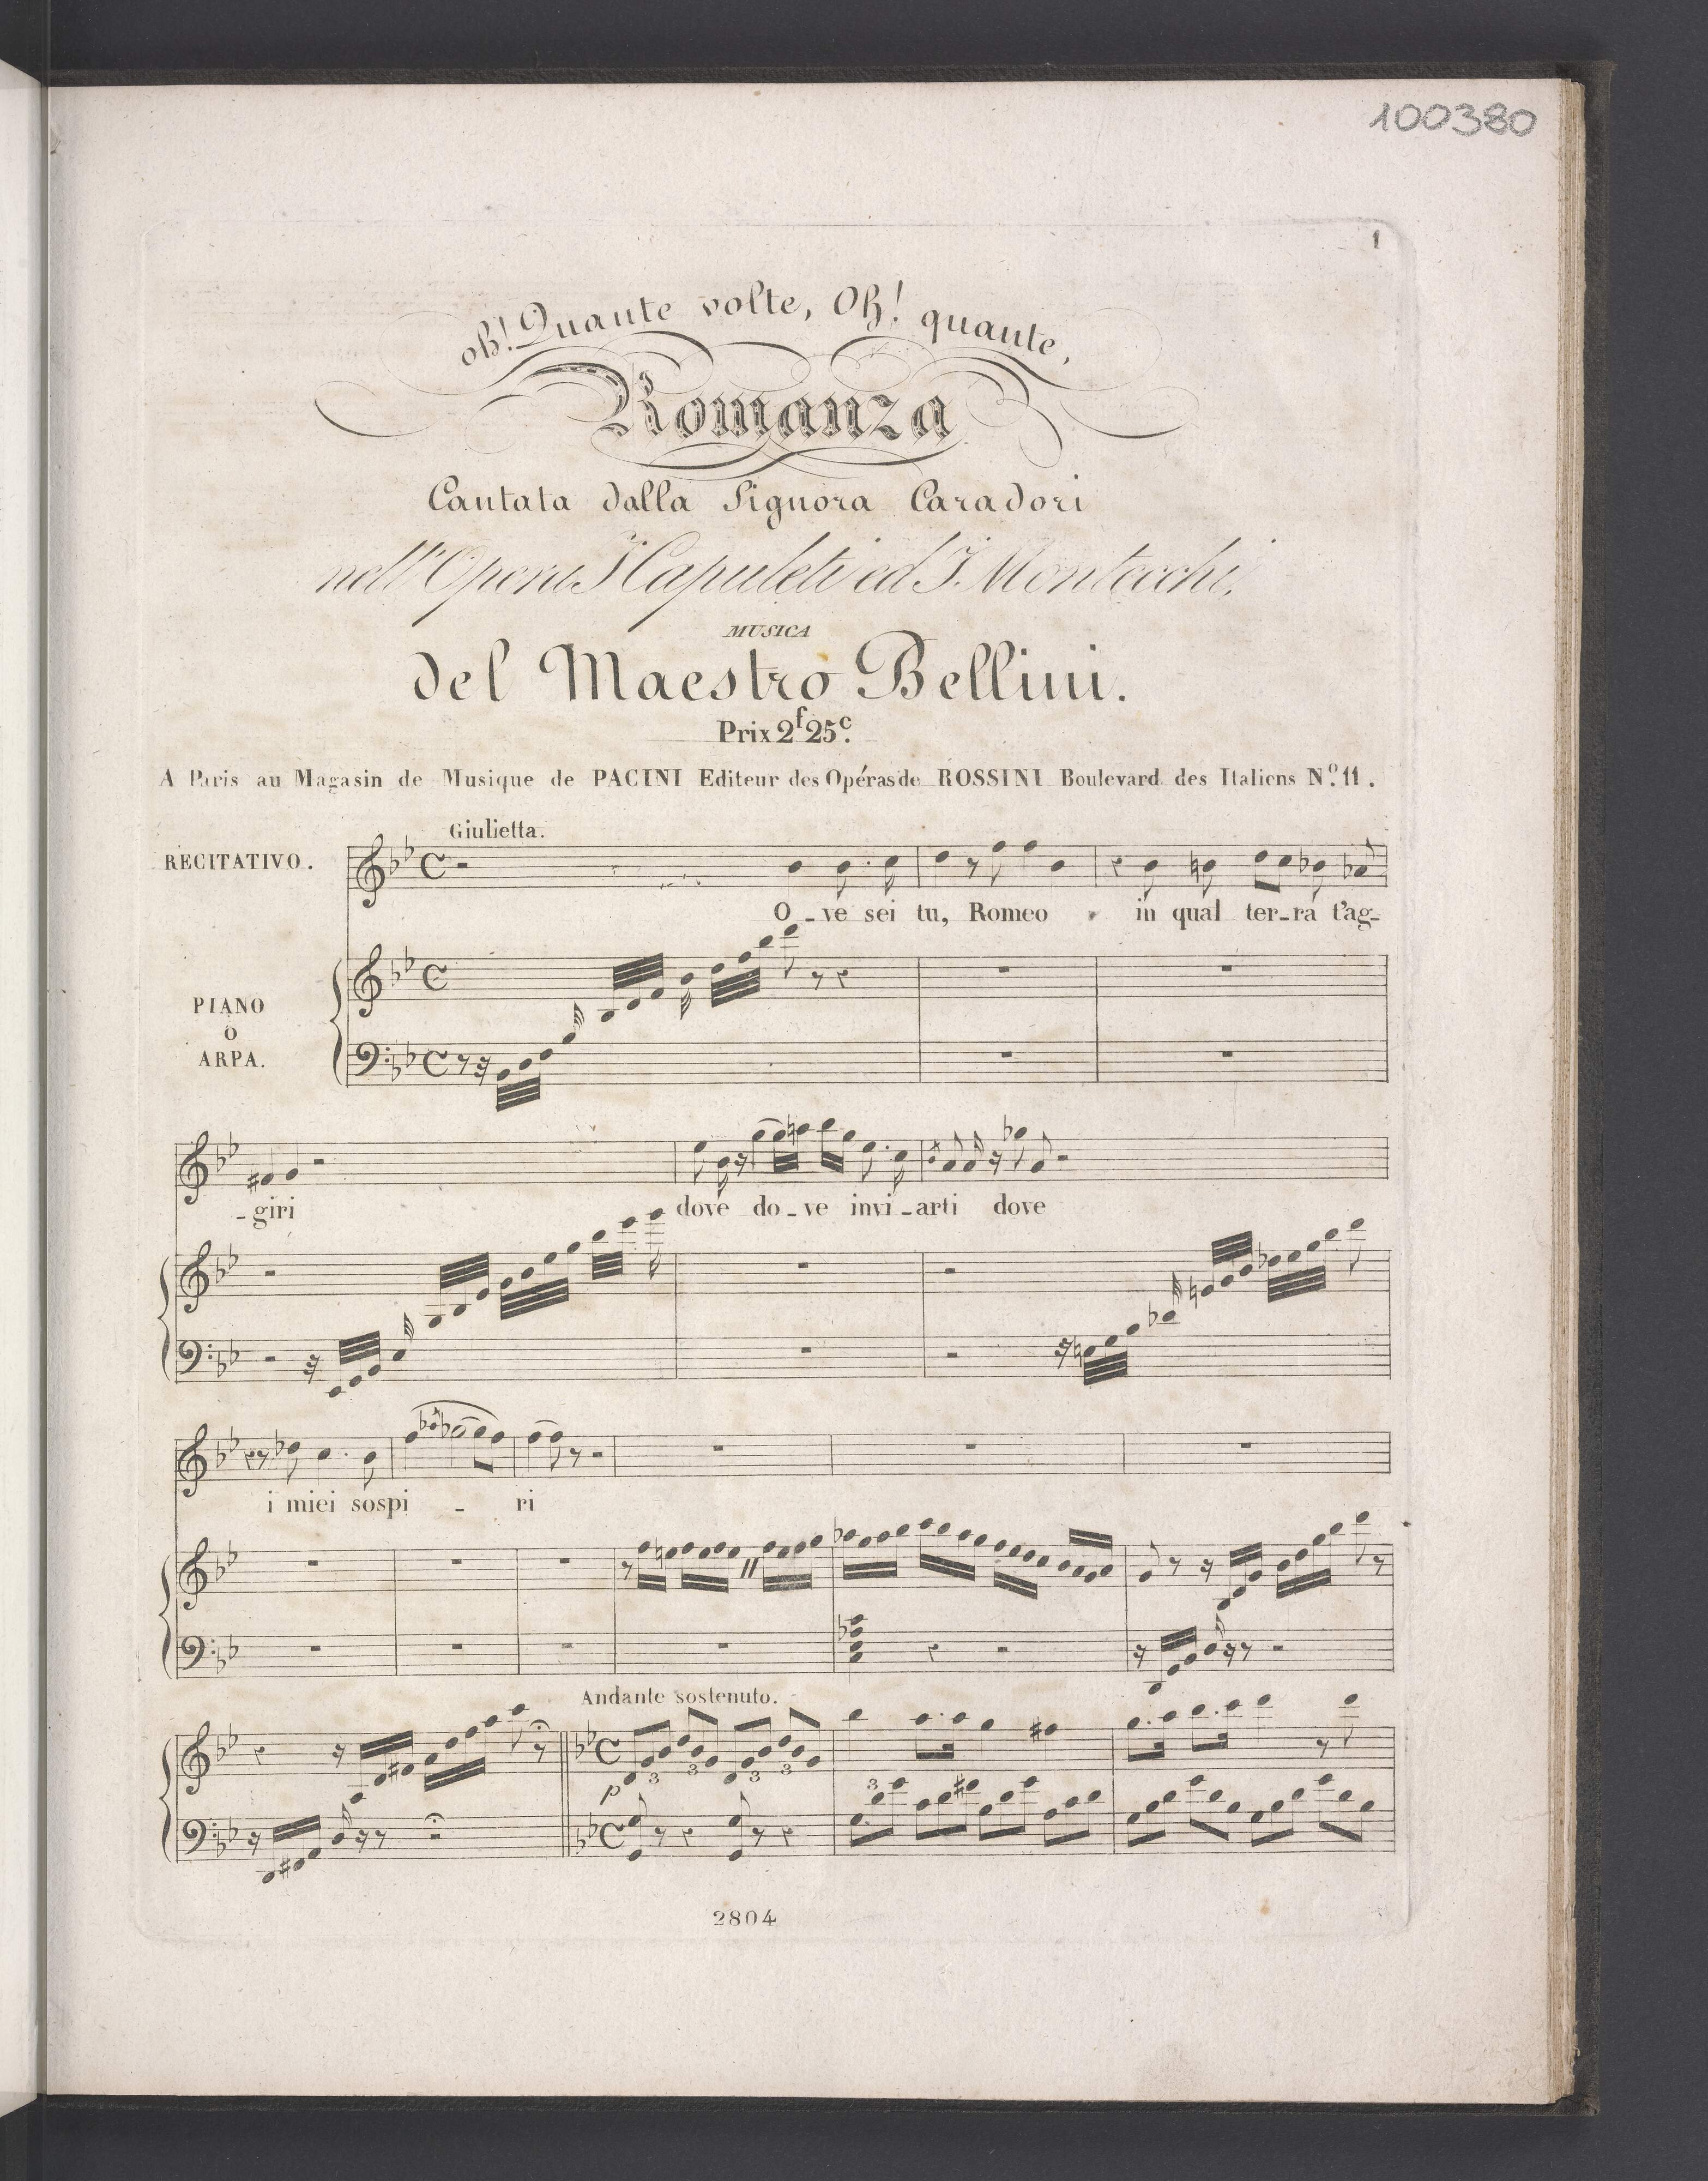 100380
1
oh! Quante volte, Oh! quante,
Romanza
Cantata dalla Signora Caradori
nell' Opera I Capuleti ed I Montecchi,
MUSICA
del Maestro Bellini.
Prix 2f 25c.
A Paris au Magasin de Musique de PACINI Editeur des Opéras de ROSSINI Boulevard des Italiens No. 11.
Giulietta.
RECITATIVO.
O - ve sei tu, Romeo in qual ter - ra t'ag -
PIANO
O
ARPA.
- giri dove do - ve invi - arti dove
i miei sospi - ri
Andante sostenuto.
p 3 3 3 3 3
2804